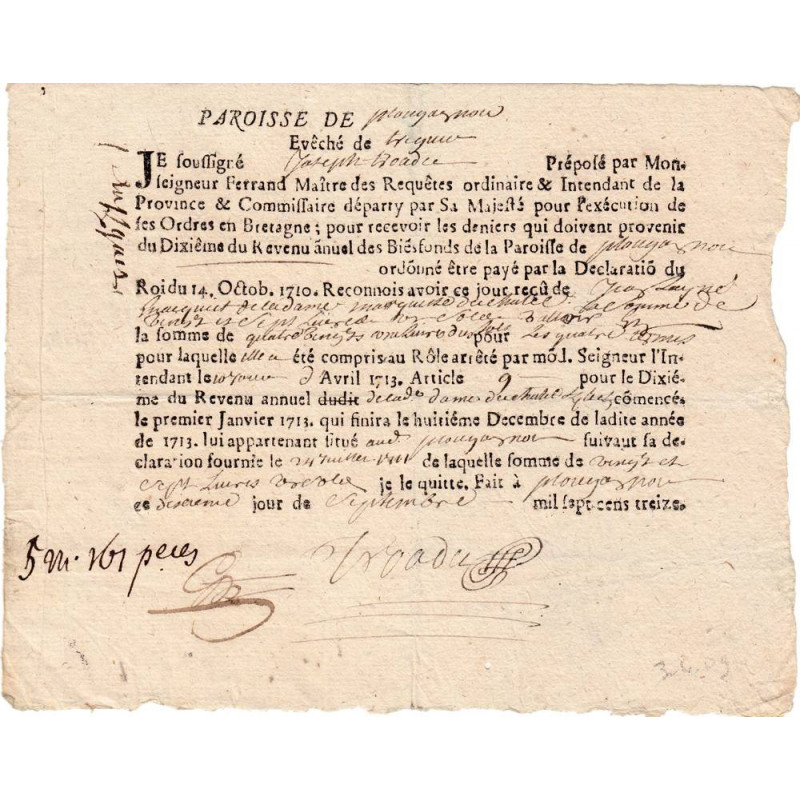 PAROISSE DE plougaznou
Evêché de treguier
JE soussigné Joseph troadec Préposé par Mon-
seigneur Ferrand Maître des Requêtes ordinaire & Intendant de la
Province & Commissaire départy par Sa Majesté pour l'exécution de
ses Ordres en Bretagne; pour recevoir les deniers qui doivent provenir
du Dixiême du Revenu ãnuel des Biẽsfonds de la Paroisse de plougaznou
ordõné être payé par la Declaratiõ du
Roi du 14. Octob. 1710. Reconnois avoir ce jour reçû de
de la dame marquise du chatel la somme de
vingt et Sept Livres
la somme de quatre vingts pour Les quatre termes
pour laquelle été compris au Rôle arrêté par mõ. Seigneur l'In-
tendant le d'Avril 1713. Article 9 pour le Dixié-
me du Revenu annuel dudit de lad. dame du chatel cõmencé
le premier Janvier 1713. qui finira le huitiéme Decembre de ladite année
de 1713. lui appartenant situé aud. plougaznou suivant sa de-
claration fournie le de laquelle somme de vingt et
Sept Livres je le quitte. Fait à plougaznou
ce dixieme jour de Septembre mil sept cens treize.
5 m. 161 peces
troadec